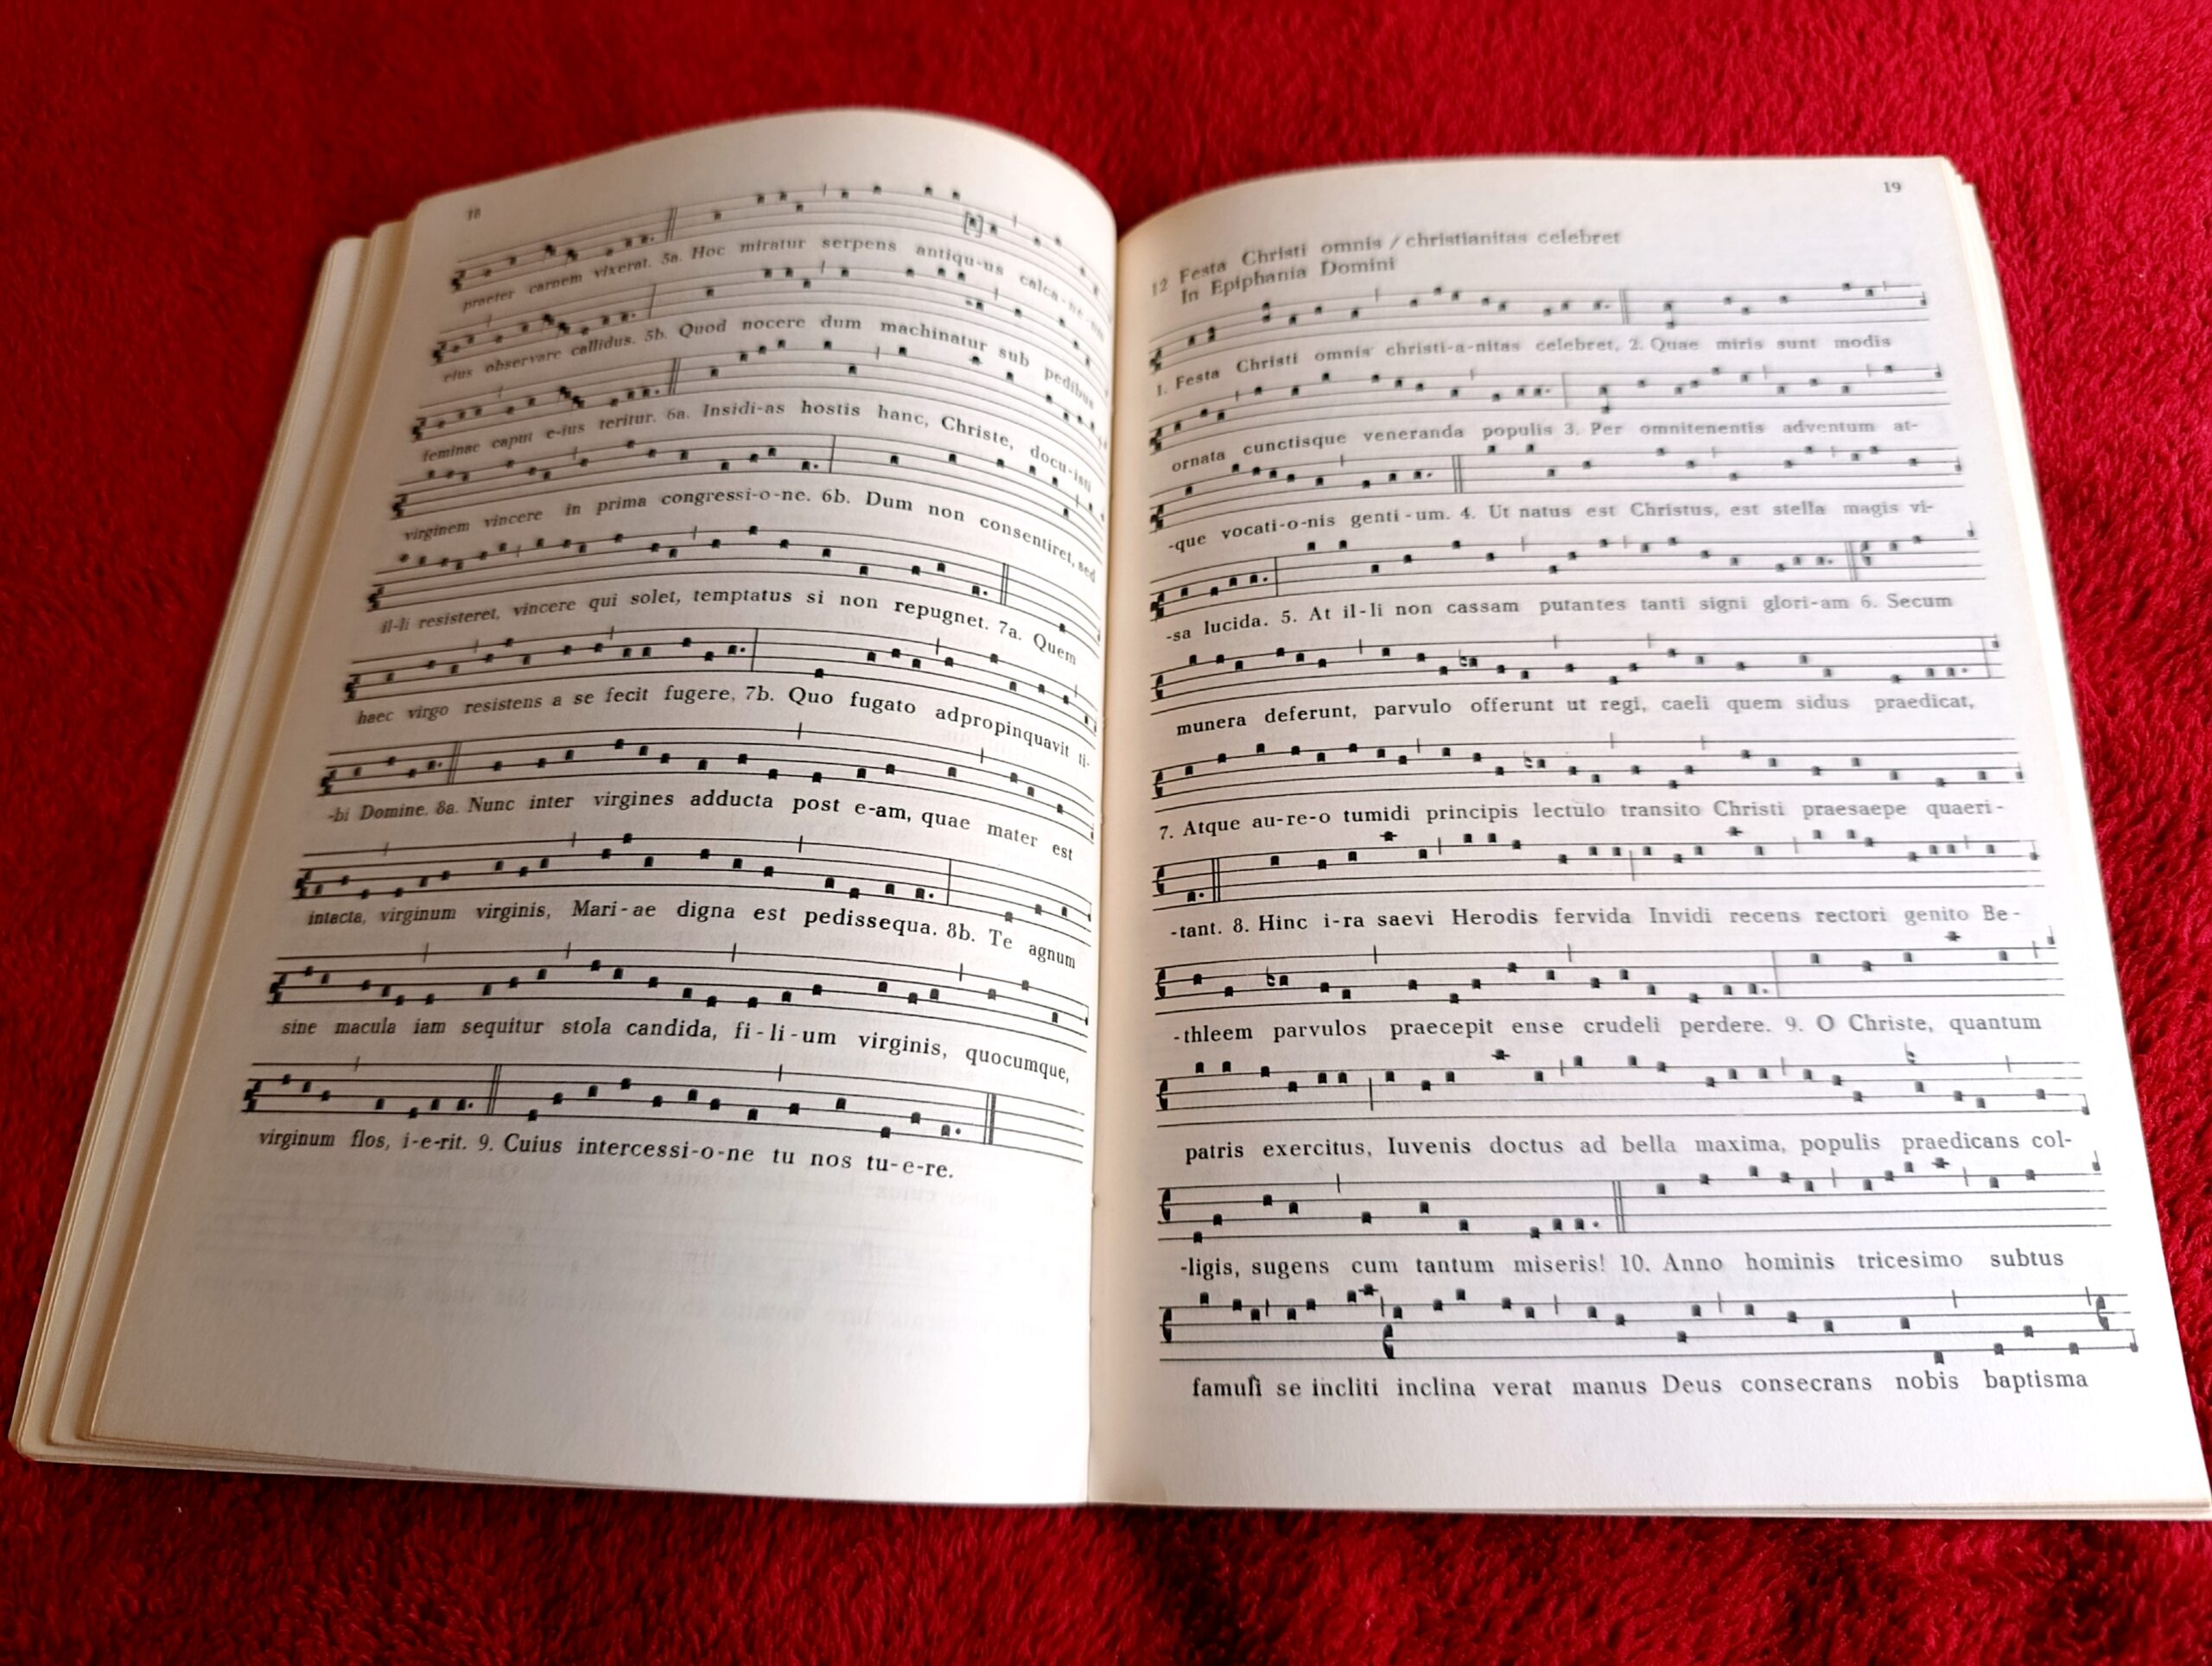 18
praeter carnem vixerat. 5a. Hoc miratur serpens antiqu-us calca-ne-um
eius observare callidus. 5b. Quod nocere dum machinatur sub pedibus
feminae caput e-ius teritur. 6a. Insidi-as hostis hanc, Christe, docu-isti
virginem vincere in prima congressi-o-ne. 6b. Dum non consentiret, sed
il-li resisteret, vincere qui solet, temptatus si non repugnet. 7a. Quem
haec virgo resistens a se fecit fugere, 7b. Quo fugato adpropinquavit ti-
-bi Domine. 8a. Nunc inter virgines adducta post e-am, quae mater est
intacta, virginum virginis, Mari-ae digna est pedissequa. 8b. Te agnum
sine macula iam sequitur stola candida, fi-li-um virginis, quocumque,
virginum flos, i-e-rit. 9. Cuius intercessi-o-ne tu nos tu-e-re.
19
12 Festa Christi omnis / christianitas celebret
In Epiphania Domini
1. Festa Christi omnis christi-a-nitas celebret, 2. Quae miris sunt modis
ornata cunctisque veneranda populis 3. Per omnitenentis adventum at-
-que vocati-o-nis genti-um. 4. Ut natus est Christus, est stella magis vi-
-sa lucida. 5. At il-li non cassam putantes tanti signi glori-am 6. Secum
munera deferunt, parvulo offerunt ut regi, caeli quem sidus praedicat,
7. Atque au-re-o tumidi principis lectulo transito Christi praesaepe quaeri-
-tant. 8. Hinc i-ra saevi Herodis fervida Invidi recens rectori genito Be-
-thleem parvulos praecepit ense crudeli perdere. 9. O Christe, quantum
patris exercitus, Iuvenis doctus ad bella maxima, populis praedicans col-
-ligis, sugens cum tantum miseris! 10. Anno hominis tricesimo subtus
famuli se incliti inclina verat manus Deus consecrans nobis baptisma